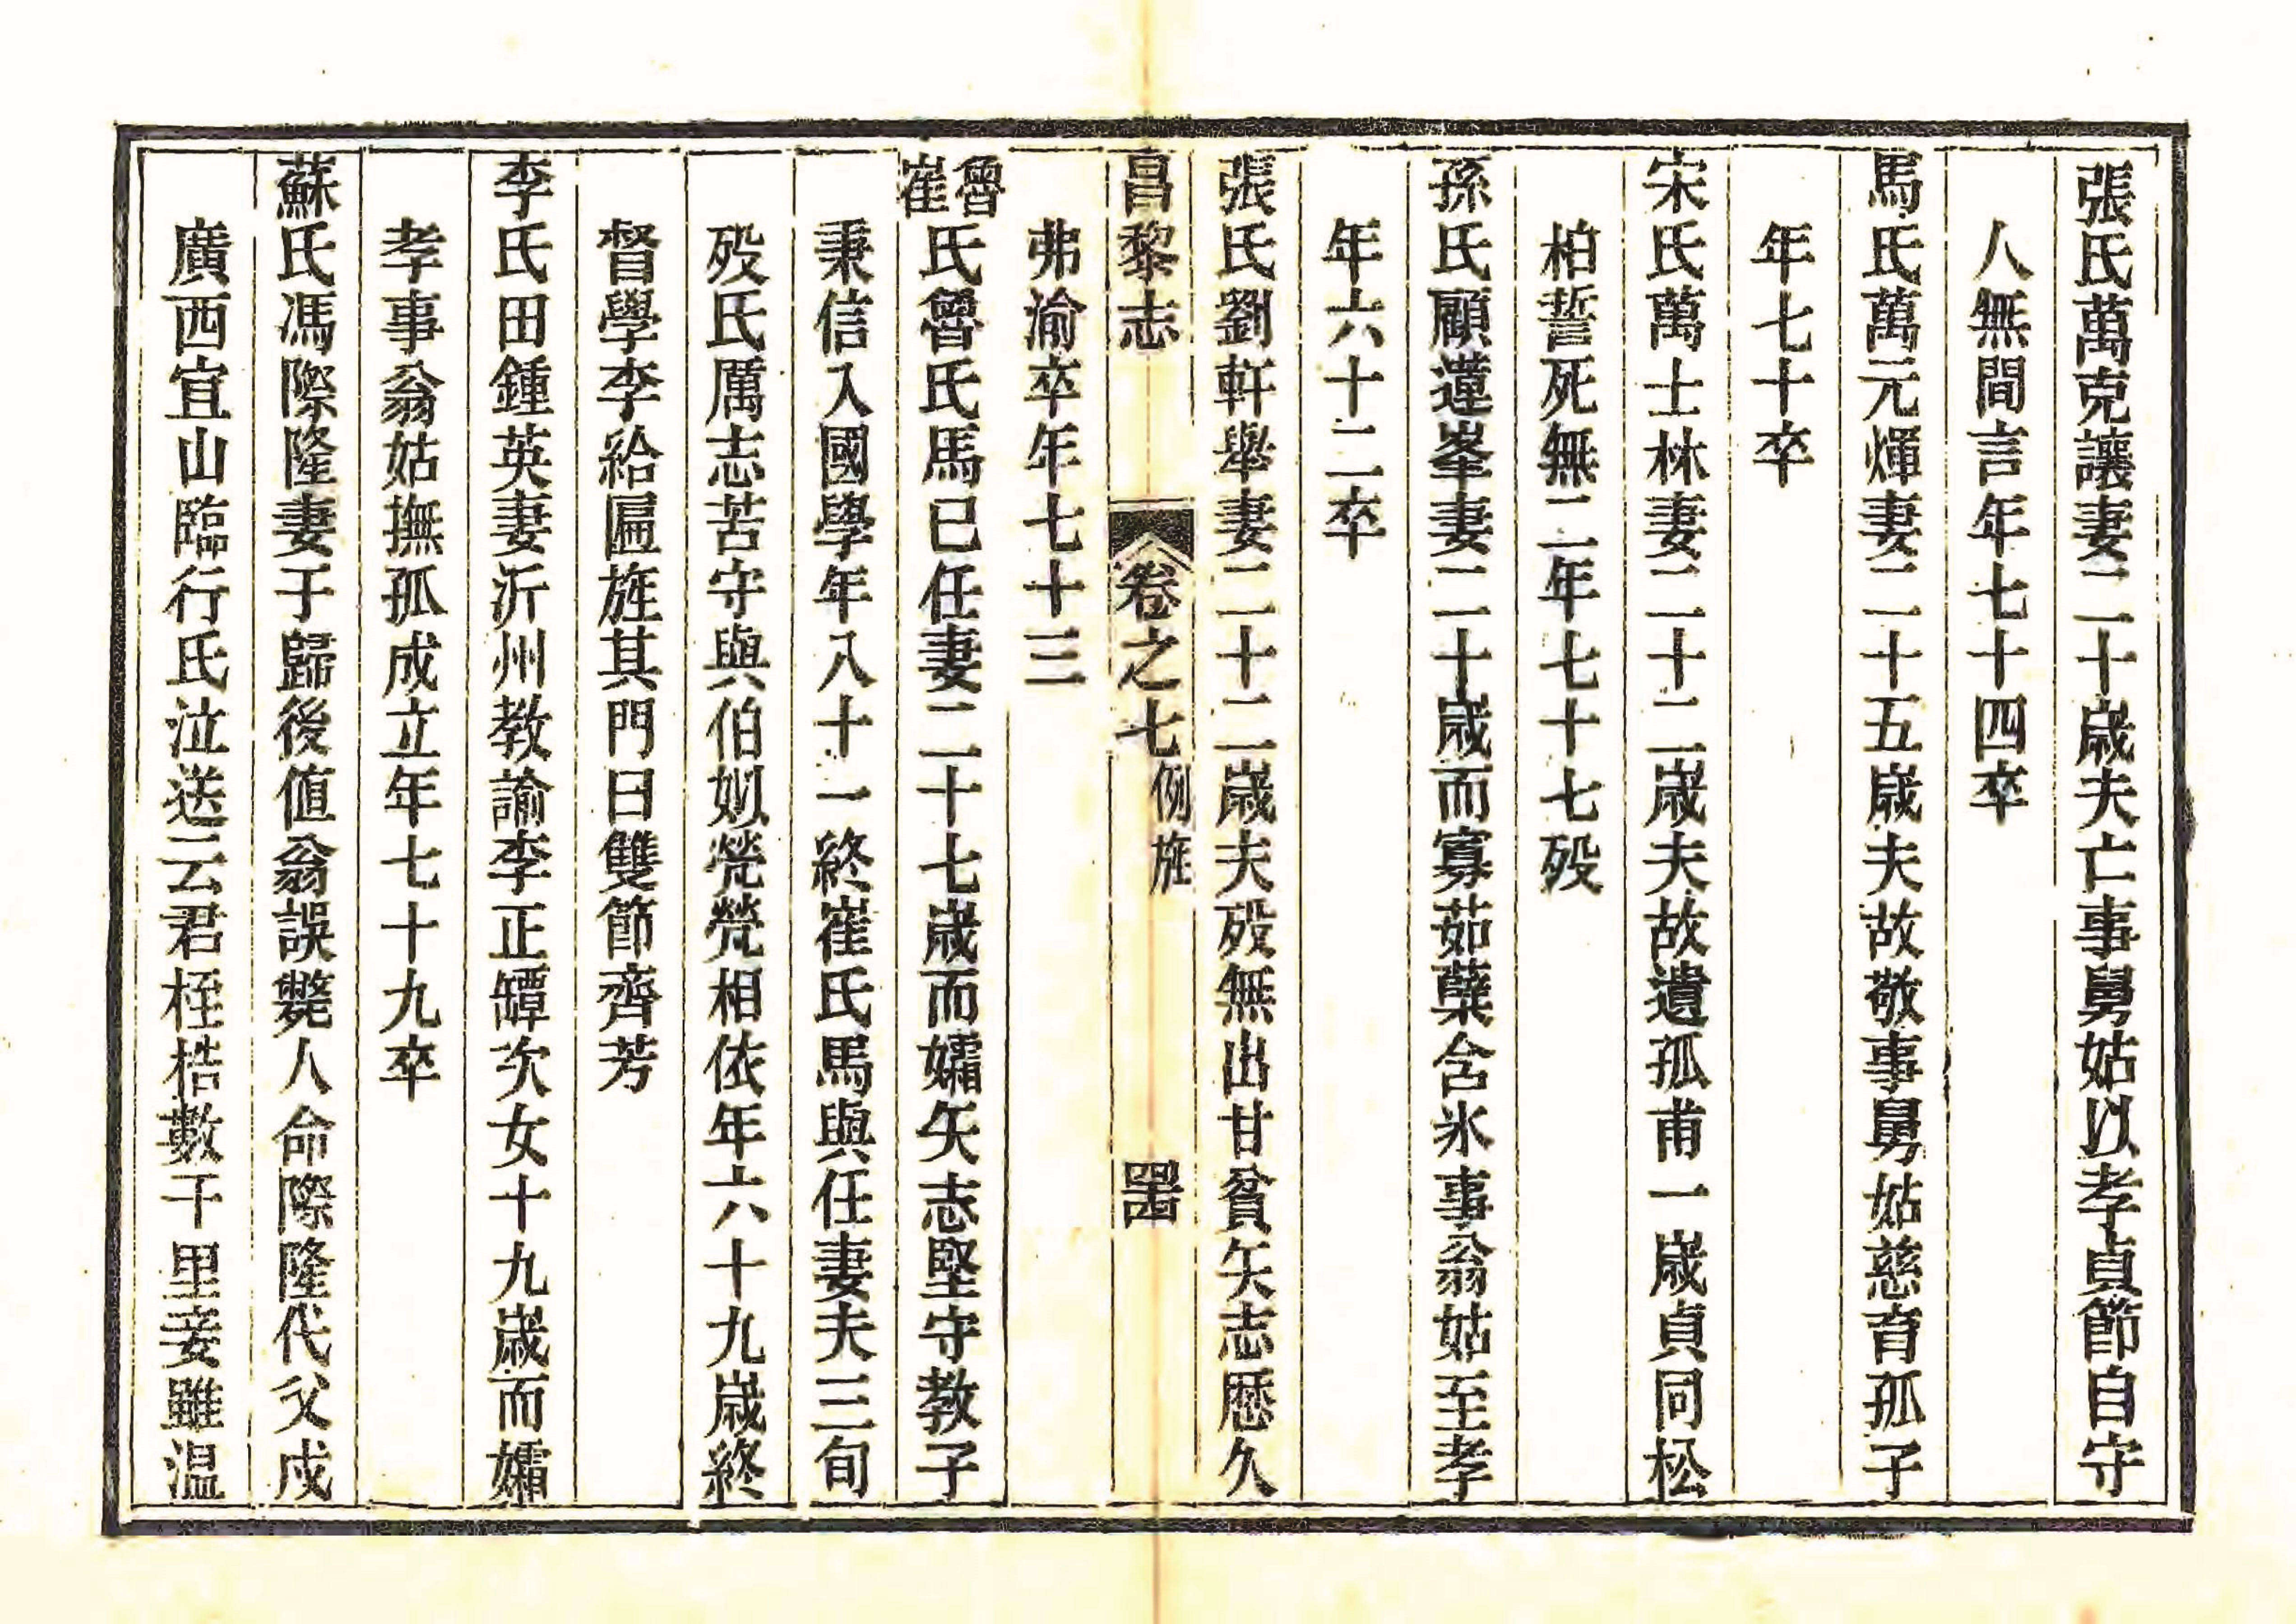 張氏萬克讓妻二十歲夫亡事舅姑以孝貞節自守
人無間言年七十四卒
馬氏萬元煇妻二十五歲夫故敬事舅姑慈育孤子
年七十卒
宋氏萬士林妻二十二歲夫故遺孤甫一歲貞同松
柏誓死無二年七十七歿
孫氏顧蓮峯妻二十歲而寡茹蘗含氷事翁姑至孝
年六十二卒
張氏劉軒舉妻二十二歲夫歿無出甘貧矢志歷久
昌黎志 卷之七 例旌 四十四
弗渝卒年七十三
魯崔氏魯氏馬已任妻二十七歲而孀矢志堅守教子
秉信入國學年八十一終崔氏馬與任妻夫三旬
歿氏厲志苦守與伯姒煢煢相依年六十九歲終
督學李給匾旌其門曰雙節齊芳
李氏田鍾英妻沂州教諭李正罈次女十九歲而孀
孝事翁姑撫孤成立年七十九卒
蘇氏馮際隆妻于歸後值翁誤斃人命際隆代父戍
廣西宜山臨行氏泣送云君桎梏數千里妾雖溫